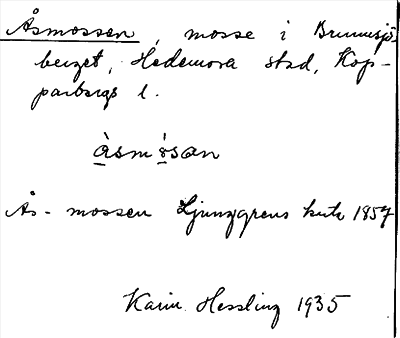 Åsmossen, mosse i Brunnsjö-
berget, Hedemora stad, Kop-
parbergs l.
åsmósan
Ås-mossen Ljunggrens karta 1857
Karin Hessling 1935